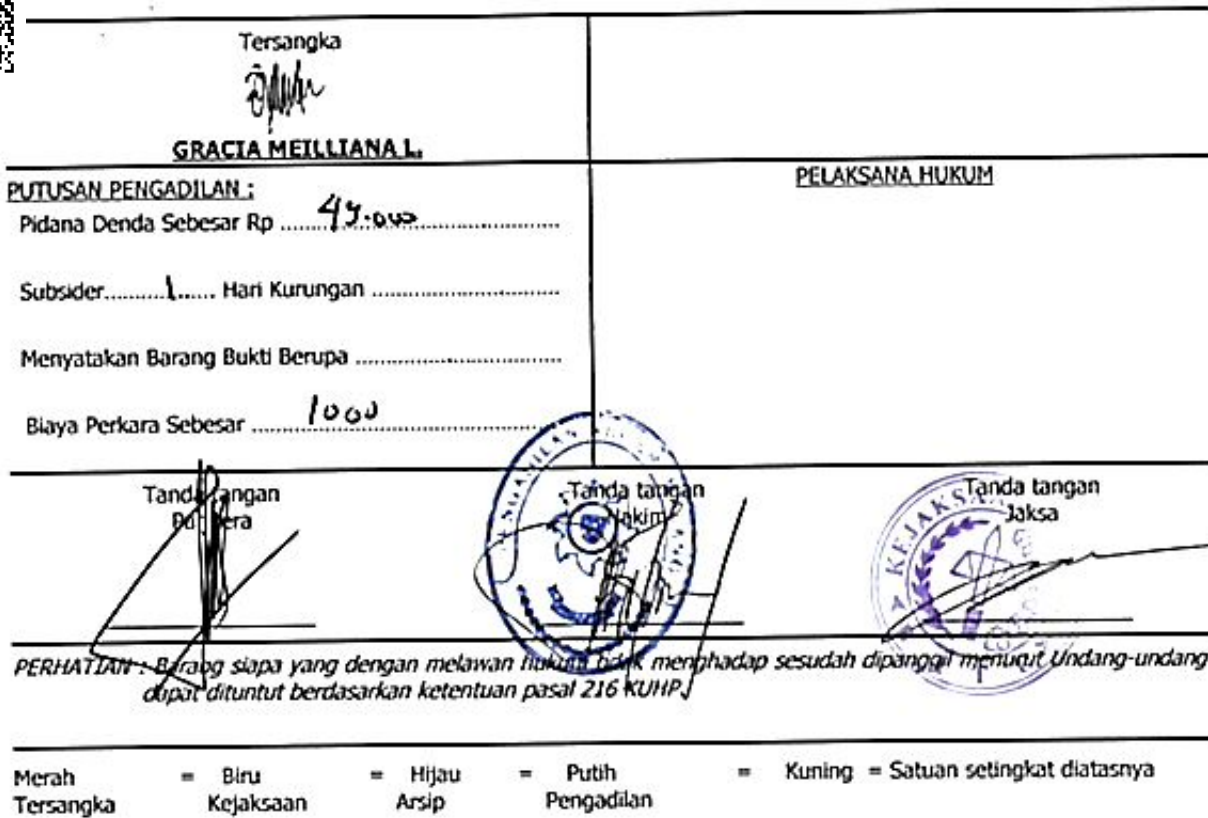 Tersangka
GRACIA MEILLIANA L.
PUTUSAN PENGADILAN :
Pidana Denda Sebesar Rp ..............................
Subsider..........1...... Hari Kurungan ..............................
Menyatakan Barang Bukti Berupa ..............................
Biaya Perkara Sebesar ........1000........
PELAKSANA HUKUM
Tanda tangan
Tanda tangan
Hakim
Tanda tangan
Jaksa
KEJAKSA
PERHATIAN : Barang siapa yang dengan melawan hukum tidak menghadap sesudah dipanggil menurut Undang-undang
dapat dituntut berdasarkan ketentuan pasal 216 KUHP.
Merah = Biru = Hijau = Putih = Kuning = Satuan setingkat diatasnya
Tersangka Kejaksaan Arsip Pengadilan